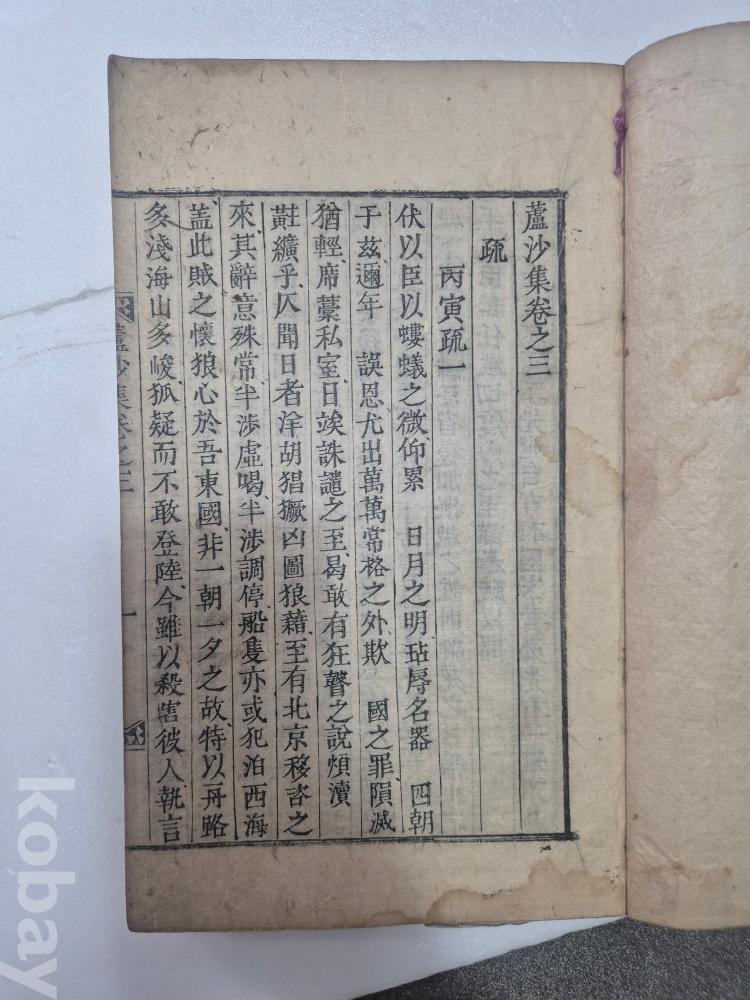 蘆沙集卷之三
疏
丙寅疏一
伏以臣以螻蟻之微仰累 日月之明玷辱名器 四朝
于玆邇年 誤恩尤出萬萬常格之外欺 國之罪隕滅
猶輕席藁私室日竢誅譴之至曷敢有狂瞽之說煩瀆
黈纊乎仄聞日者洋胡猖獗凶圖狼藉至有北京移咨之
來其辭意殊常半涉虛喝半涉調停船隻亦或犯泊西海
盖此賊之懷狼心於吾東國非一朝一夕之故特以舟路
多淺海山多峻狐疑而不敢登陸今雖以殺害彼人執言
蘆沙集卷之三
一
kobay